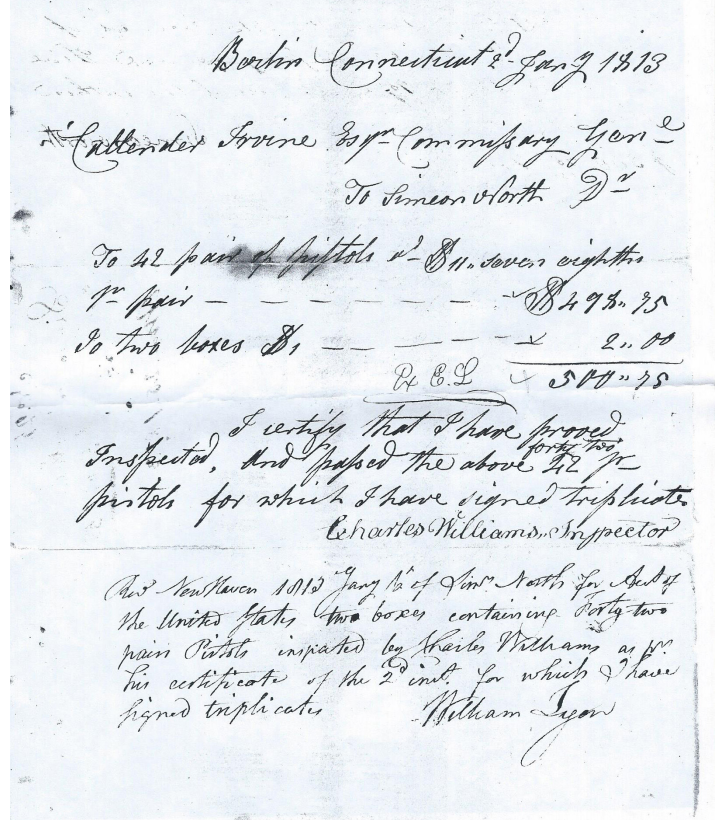 Berlin Connecticut 2d Jany 1813
Callender Irvine Esqr Commissary Genl
To Simeon North Dr
To 42 pair of pistols at $11,, seven eighths
pr pair — — — — — — $498,,75
To two boxes $1 — — — — 2,,00
Ex E.L 500,,75
I certify that I have proved
Inspected, and passed the above forty two 42 pr
pistols for which I have signed triplicates
Charles Williams,, Inspector
Recd New Haven 1813 Jany of Simn North for Acct of
the United States two boxes containing Forty two
pair Pistols inspected by Charles Williams as pr
his certificate of the 2d inst. for which I have
signed triplicates William Lyon